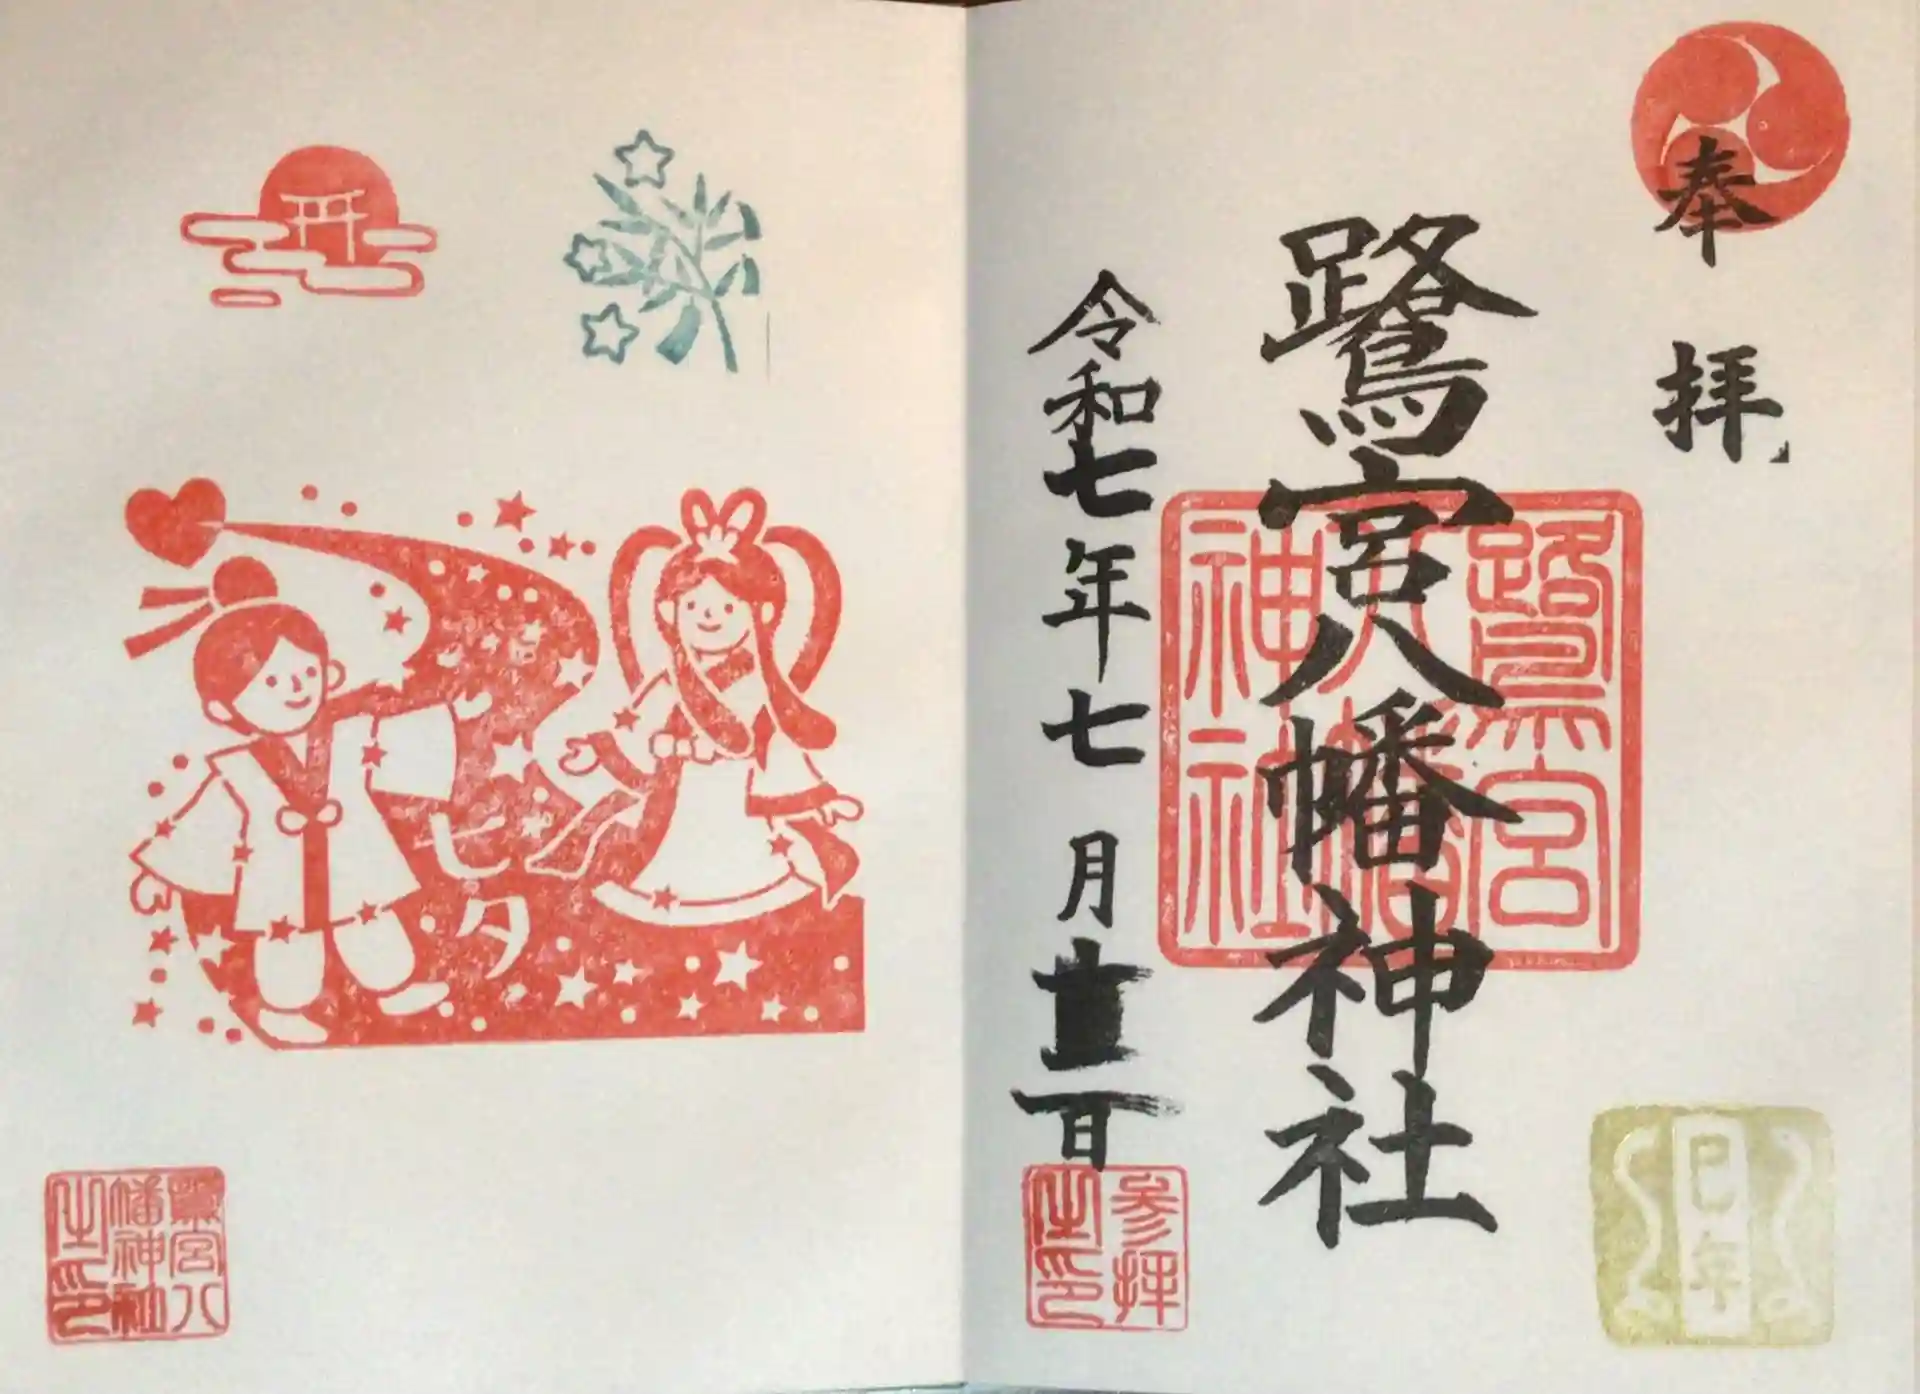 奉拝
巳年
鷺宮八幡神社
鷺宮
八幡
神社
令和七年七月日
参拝
之印
七夕
鷺宮八
幡神社
之印